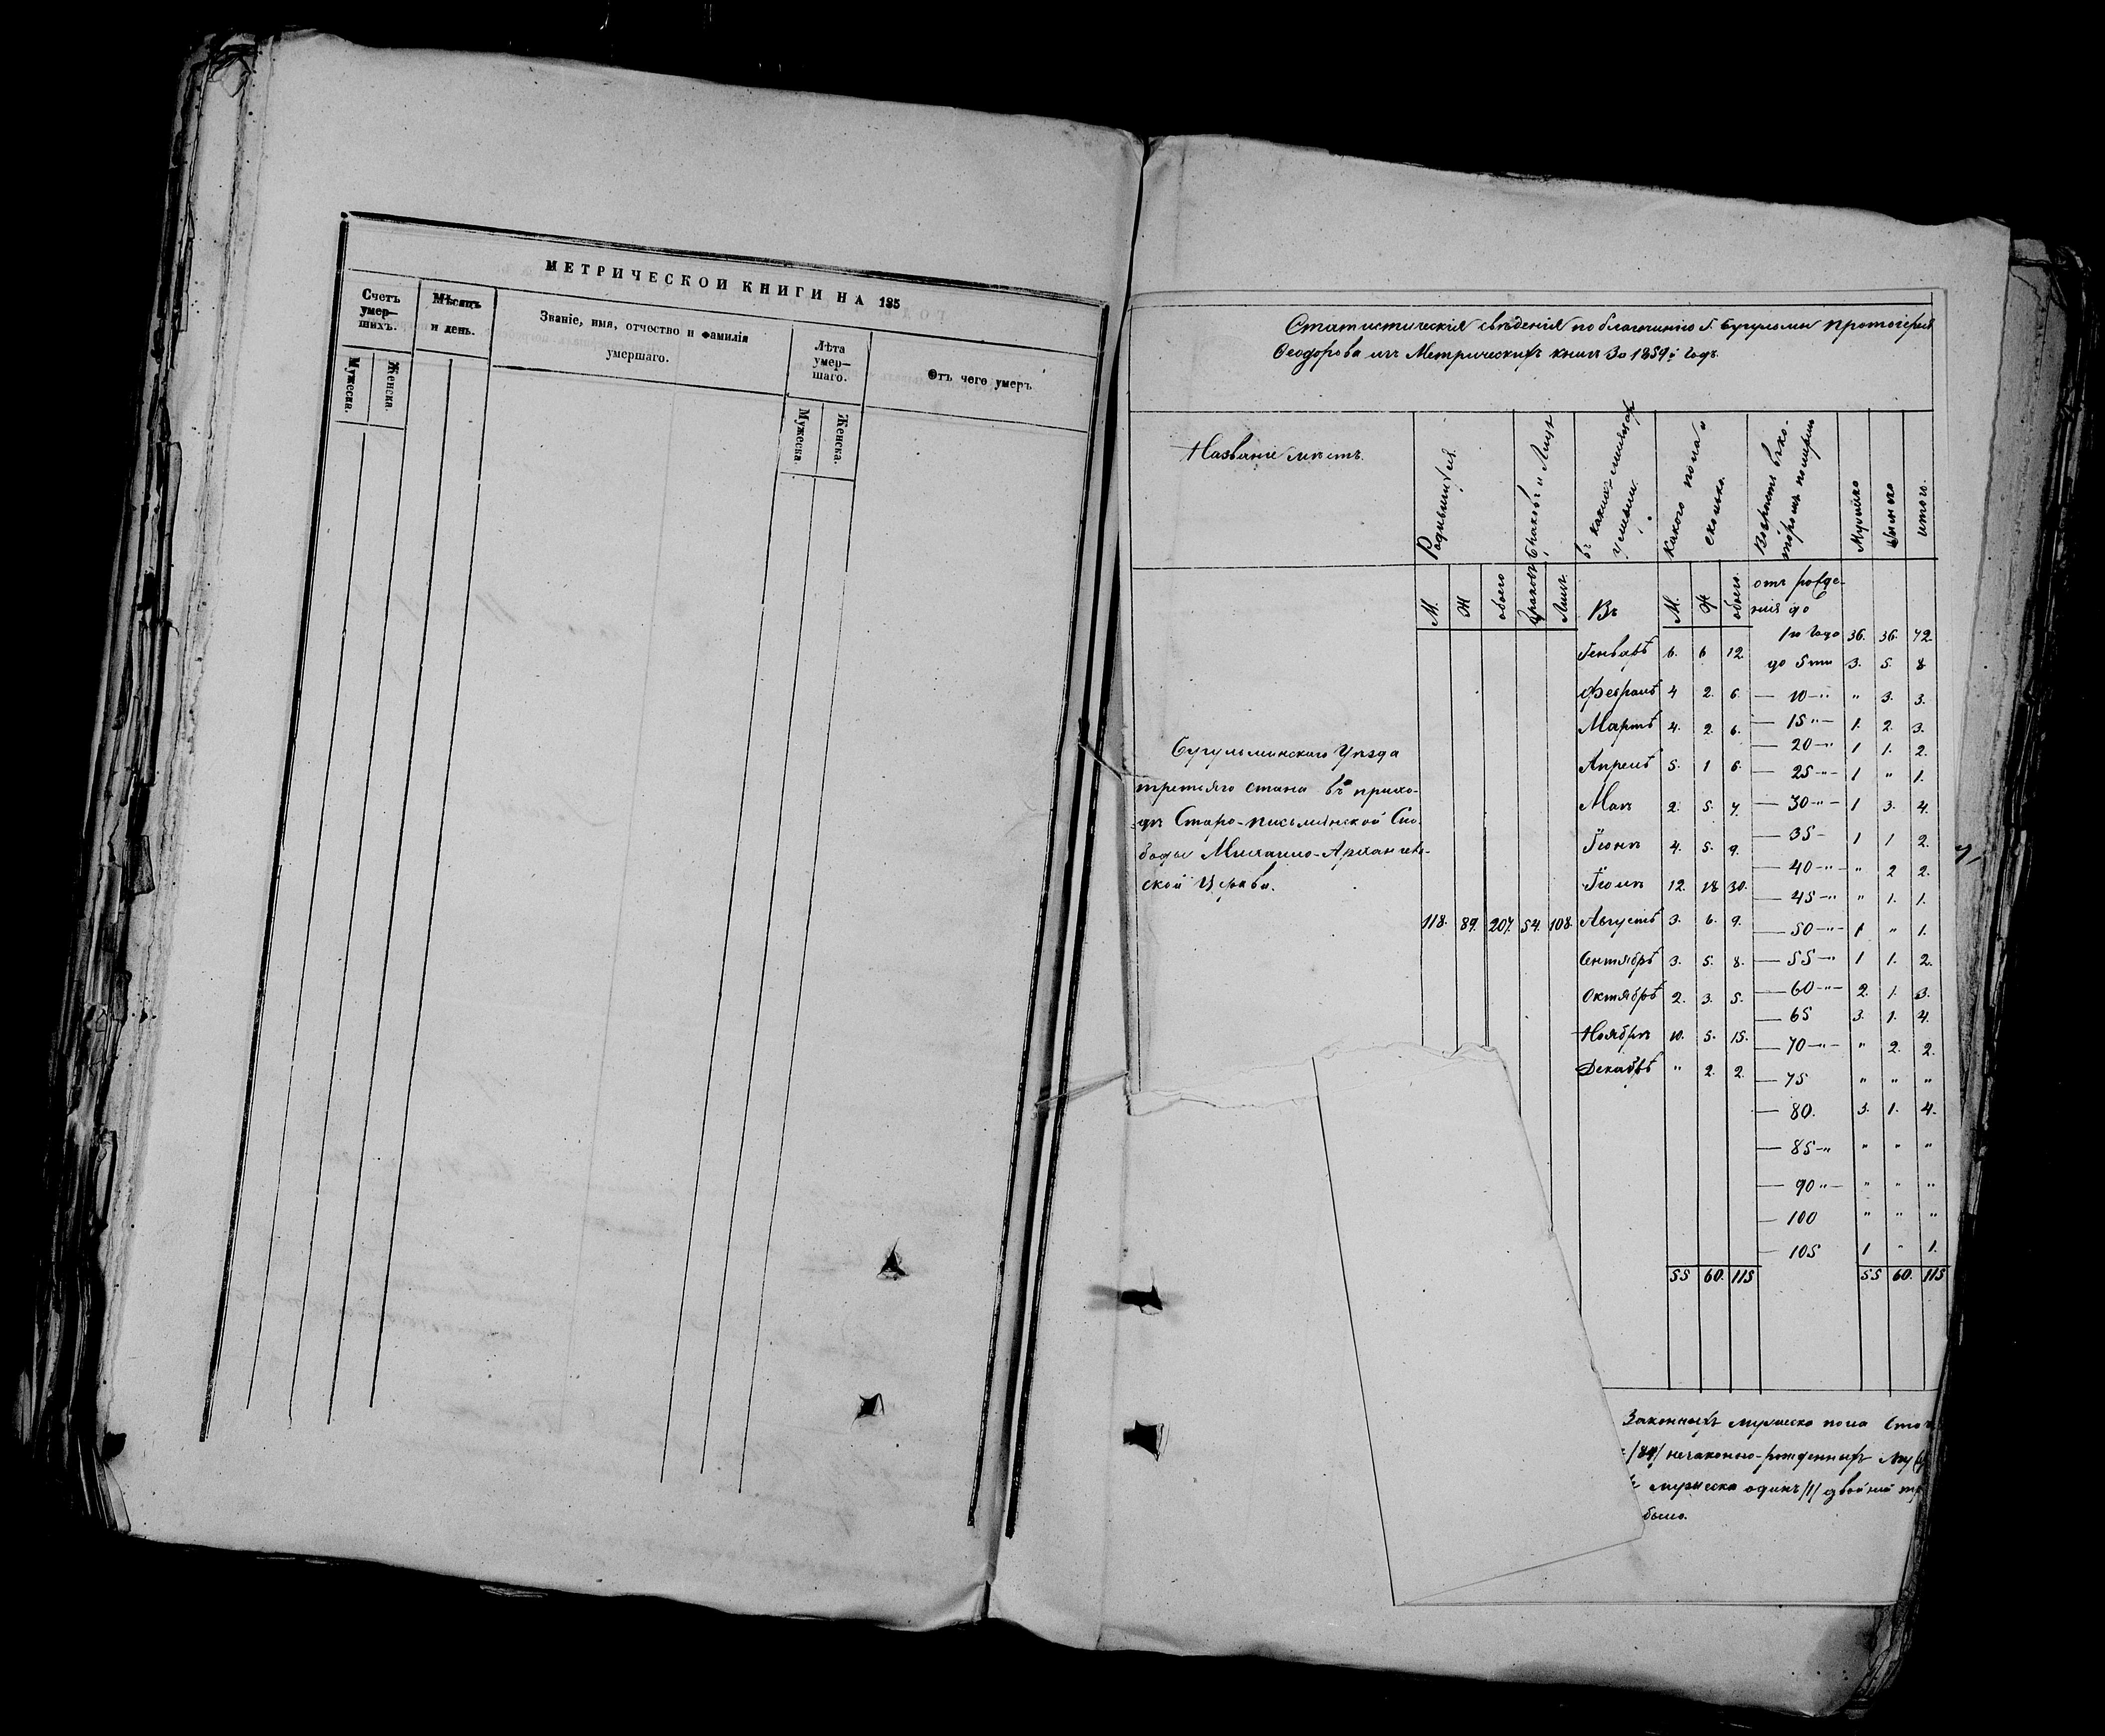 МЕТРИЧЕСКОЙ КНИГИ НА 185
Счетъ умер—шихъ.
Мѣсяцъ и день.
Званіе, имя, отчество и фамилія умершаго.
Лѣта умер—шаго.
Отъ чего умеръ
Мужеска.
Женска.
Мужеска.
Женска.
Статистическія свѣденія по благочинію г. Бугульмы протоіерея
Ѳеодорова изъ Метрическихъ книгъ За 1859й годъ.
Названіе мѣстъ.
Родившихся.
Браковъ и Лицъ
въ какихъ мѣсяцахъ умерли.
Какого пола и сколько.
Возрастъ въ которомъ померли
Мужеска
Женска
итого.
М. Ж обоего Браковъ Лицъ. Въ М. Ж обоего.
отъ рожде-
нія до
1го Года 36. 36. 72.
Генварѣ 6. 6 12.
до 5ти 3. 5. 8
Февралѣ 4 2. 6.
— 10 —„ „ 3. 3.
Мартѣ 4. 2. 6.
— 15 „— 1. 2. 3.
— 20 —„ 1 1. 2.
Апрелѣ 5. 1 6.
— 25 —„— 1 „ 1.
Маѣ 2. 5. 7.
— 30 —„— 1 3. 4.
Іюнѣ 4. 5. 9.
— 35 — 1 1 2.
— 40 —„— „ 2 2.
Іюлѣ 12. 18 30.
— 45 —„ „ 1. 1.
Бугульминскаго Уѣзда
третьяго стана въ прихо-
дѣ Старо-письмянской Сло-
боды Михаило-Архангель-
ской Церкви.
118. 89. 207. 54. 108.
Августѣ 3. 6. 9.
— 50 —„— 1 „ 1.
Сентябрѣ 3. 5. 8.
— 55 —„ 1 1. 2.
Октябрѣ 2. 3. 5.
— 60 —„— 2. 1. 3.
— 65 3. 1. 4.
Ноябрѣ 10. 5. 15.
— 70 —„— „ 2. 2.
Декабрѣ „ 2. 2
— 75 „ „ „
— 80. 3. 1. 4.
— 85 —„ „ „ „
— 90 „— „ „ „
— 100 „ „ „
— 105 1 „ 1.
55 60. 115 55 60. 115
Законныхъ мужеска пола Сто
/89/ незаконно-рожденныхъ
мужеска одинъ /1/ двойней
было.